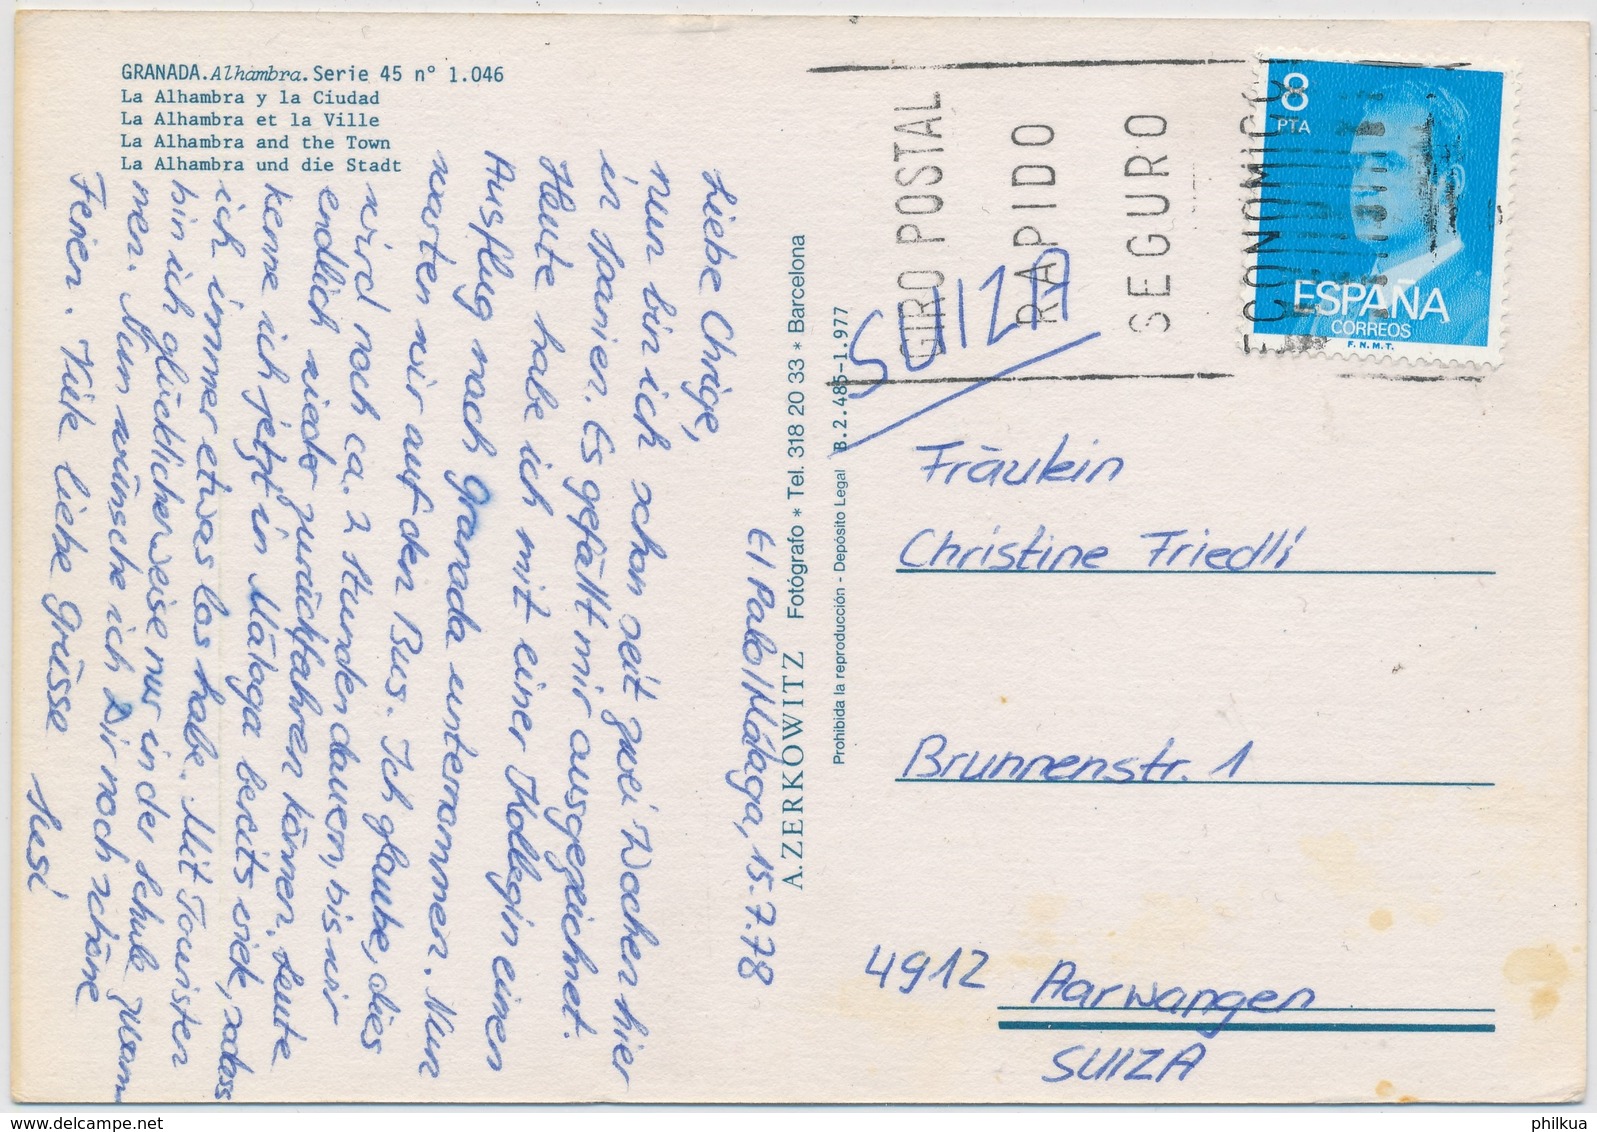 GRANADA. Alhambra. Serie 45 nº 1.046
La Alhambra y la Ciudad
La Alhambra et la Ville
La Alhambra and the Town
La Alhambra und die Stadt
El Palo/Málaga, 15.7.78
Liebe Chrige,
Nun bin ich schon seit zwei Wochen hier
in Spanien. Es gefällt mir ausgezeichnet.
Heute habe ich mit einer Kollegin einen
Ausflug nach Granada unternommen. Nun
warten wir auf den Bus. Ich glaube, dies
wird noch ca. 2 Stunden dauern, bis wir
endlich wieder zurückfahren können. Leute
kenne ich jetzt in Málaga bereits viele, sodass
ich immer etwas los habe. Mit Touristen
bin ich glücklicherweise nur in der Schule zusam
men. Nun wünsche ich Dir noch schöne
Ferien. Viele liebe Grüsse
Susi
A. ZERKOWITZ Fotógrafo * Tel. 318 20 33 * Barcelona
Prohibida la reproducción - Depósito Legal B.2.485-1.977
GIRO POSTAL
RAPIDO
SEGURO
ECONOMICO
8
PTA
ESPAÑA
CORREOS
F.N.M.T.
SUIZA
Fräulein
Christine Friedli
Brunnenstr. 1
4912 Aarwangen
SUIZA
philkua